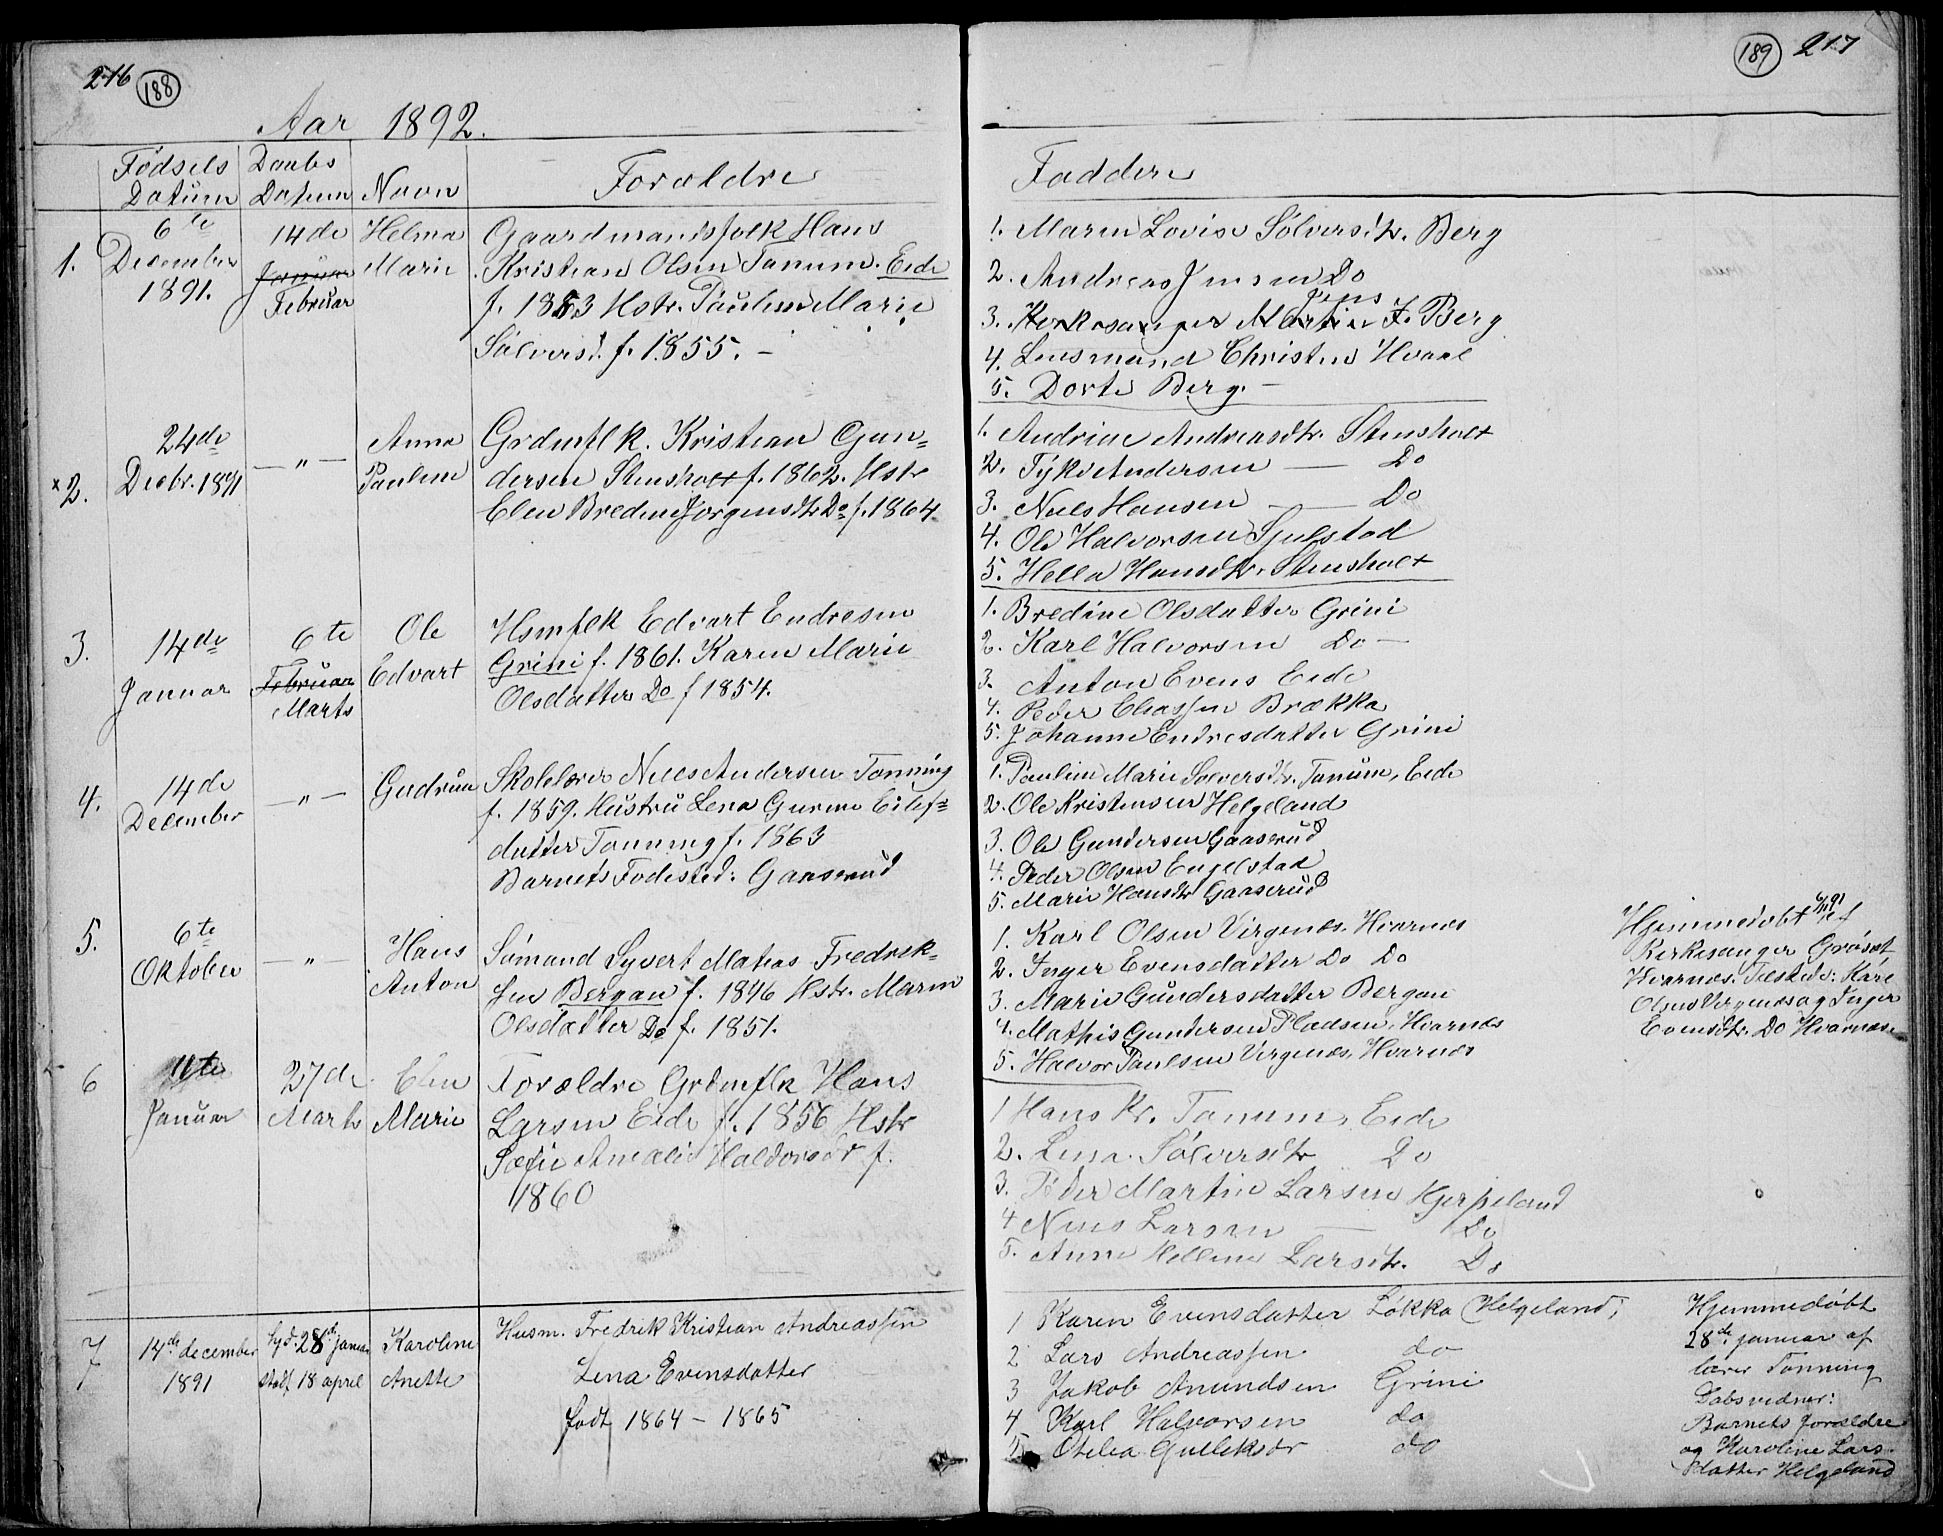 216 188
Aar 1892.
Fødsels Datum | Daabs Datum | Navn | Forældre
1. 6te December 1891. | 14de Januar Februar | Helma Marie
Gaardmandsfolk Hans
Kristian Olsen Tanum. Eide
f. 1853 Hstr. Pauline Marie
Sølversd. f. 1855. –
×2. 24de Decbr. 1891 | — " — | Anna Pauline
Grdmflk. Kristian Gun=
dersen Stensholt f. 1862. Hstr
Elen Bredine Jørgensdtr Do f. 1864
3. 14de Januar | 6te Februar Marts | Ole Edvart
Hsmflk Edvart Endresen
Grini f. 1861. Karen Marie
Olsdatter Do f 1854.
4. 14de December | — " — | Gudrun
Skolelærer Niels Andersen Tanning
f. 1859. Hustru Lena Gurine Eilef=
datter Tanning f. 1863
Barnets Fødested: Gaaserud
5. 6te Oktober | — " — | Hans Anton
Sømand Syvert Matias Fredrik=
sen Bergan f. 1846 Hstr. Maren
Olsdatter Do f. 1851.
6 11te Januar | 27de Marts | Elen Marie
Forældre Grdmflk Hans
Larsen Eide f. 1856 Hstr
Sofie Amalie Haldorsdr f.
1860
7 14de december 1891 | hjd. 28de januar stadf. 18 april | Karoline Anette
Husm. Fredrik Kristian Andreassen
Lena Evensdatter
født 1864 – 1865
189 217
Faddere
1. Maren Lovise Sølversdtr. Berg
2. Andreas Jensen Do
Jens
3. Kirkesanger Martin J. Berg
4. Lensmand Christen Hvaal
5. Dorte Berg. –
1. Andrine Andreasdtr. Stensholt
2. Tykve Andersen — Do
3. Niels Hansen — Do
4. Ole Halvorsen Gjulstad
5. Hella Hansdtr. Stensholt
1. Bredine Olsdatter Grini
2. Karl Halvorsen Do –
3. Anton Evens Eide
4. Peder Eliassen Brække
5. Johanne Endresdatter Grini
1. Pauline Marie Sølversdtr. Tanum, Eide
2. Ole Kristensen Helgeland
3. Ole Gundersen Gaaserud
4. Peder Olsen Engelstad
5. Marie Hansdtr Gaaserud
1. Karl Olsen Virgenes. Hvarnes
2. Inger Evensdatter Do Do
3. Marie Gundersdatter Bergan
4. Mathis Gundersen Pladsen, Hvarnes
5. Halvor Paulsen Virgenes, Hvarnes
Hjemmedøbt af
Kirkesanger Grøset
Hvarnes. Tilstede: Karl
Olsen Virgenes og Inger
Evensdtr. Do Hvarnes.
1 Hans Kr. Tanum, Eide
2. Lena Sølversdtr Do
3. Peder Martin Larsen Kjerpeland
4 Niels Larsen — Do
5. Anne Helline Larsdtr. Do
1 Karen Evensdatter Løkka (Helgeland)
2 Lars Andreassen do
3 Jakob Amundsen Grini
4 Karl Halvorsen do
5 Otelia Gulleksdr do
Hjemmedøbt
28de januar af
lærer Tanning
Dabsvidner:
Barnets forældre
og Karoline Lars-
datter Helgeland